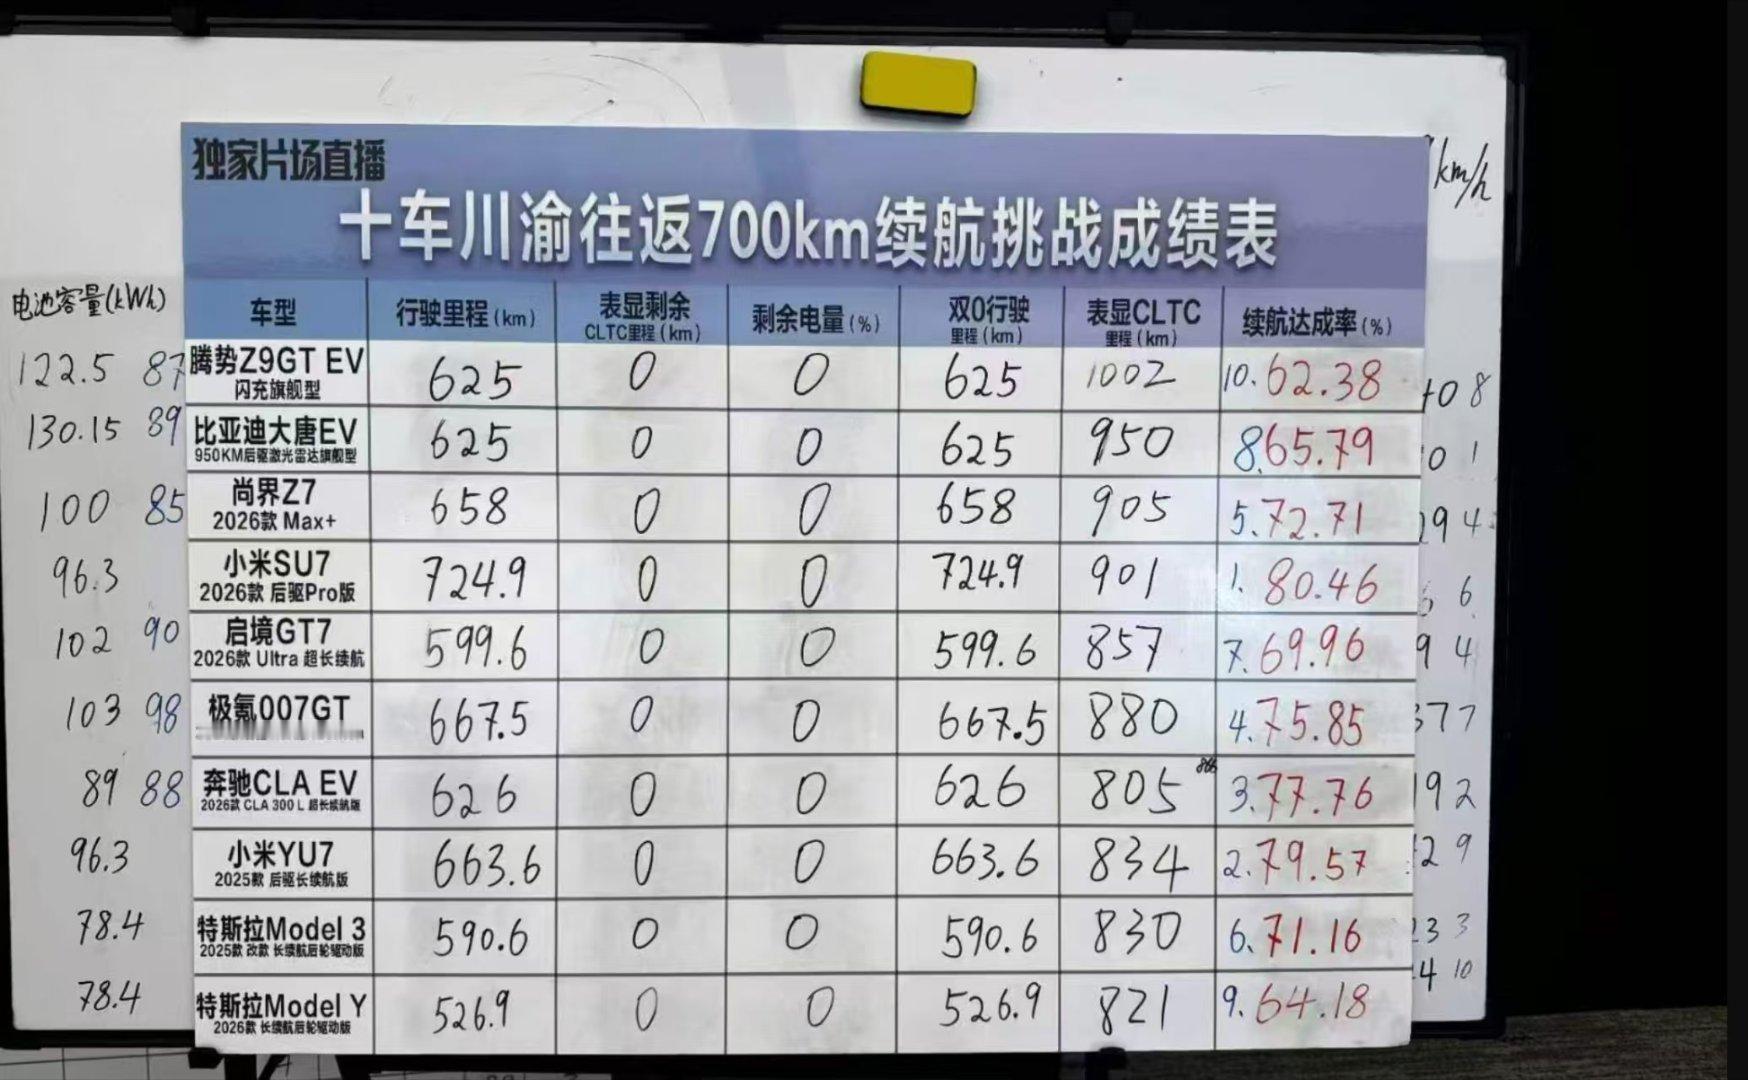 独家片场直播
十车川渝往返700km续航挑战成绩表
km/h
电池容量(kWh)
车型 行驶里程(km) 表显剩余CLTC里程(km) 剩余电量(%) 双0行驶里程(km) 表显CLTC里程(km) 续航达成率(%)
122.5 87 腾势Z9GT EV 625 0 0 625 1002 10.62.38 08
闪充旗舰型
130.15 89 比亚迪大唐EV 625 0 0 625 950 8.65.79 01
950KM后驱激光雷达旗舰型
100 85 尚界Z7 658 0 0 658 905 5.72.71 94
2026款 Max+
96.3 小米SU7 724.9 0 0 724.9 901 1.80.46 6
2026款 后驱Pro版
102 90 启境GT7 599.6 0 0 599.6 857 7.69.96 94
2026款 Ultra 超长续航
103 98 极氪007GT 667.5 0 0 667.5 880 4.75.85 77
89 88 奔驰CLA EV 626 0 0 626 805 3.77.76 92
2026款 CLA 300 L 超长续航版
96.3 小米YU7 663.6 0 0 663.6 834 2.79.57 29
2025款 后驱长续航版
78.4 特斯拉Model 3 590.6 0 0 590.6 830 6.71.16 33
2025款 改款 长续航后轮驱动版
78.4 特斯拉Model Y 526.9 0 0 526.9 821 9.64.18 4 10
2026款 长续航后轮驱动版